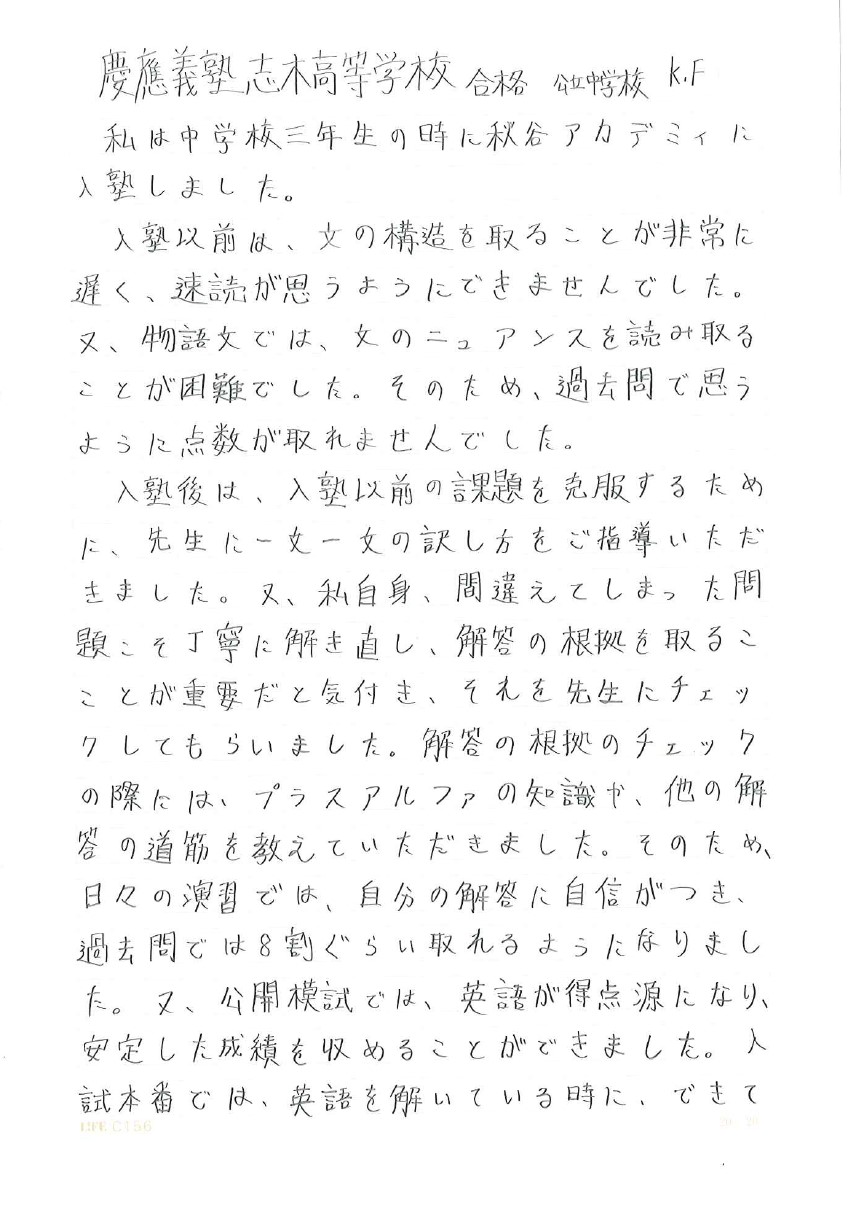 慶應義塾志木高等学校 合格 公立中学校 K.F
私は中学校三年生の時に秋谷アカデミィに
入塾しました。
入塾以前は、文の構造を取ることが非常に
遅く、速読が思うようにできませんでした。
又、物語文では、文のニュアンスを読み取る
ことが困難でした。そのため、過去問で思う
ように点数が取れませんでした。
入塾後は、入塾以前の課題を克服するため
に、先生に一文一文の訳し方をご指導いただ
きました。又、私自身、間違えてしまった問
題こそ丁寧に解き直し、解答の根拠を取るこ
ことが重要だと気付き、それを先生にチェッ
クしてもらいました。解答の根拠のチェック
の際には、プラスアルファの知識や、他の解
答の道筋を教えていただきました。そのため、
日々の演習では、自分の解答に自信がつき、
過去問では8割ぐらい取れるようになりまし
た。又、公開模試では、英語が得点源になり、
安定した成績を収めることができました。入
試本番では、英語を解いている時に、できて
LIFE C156
20 20